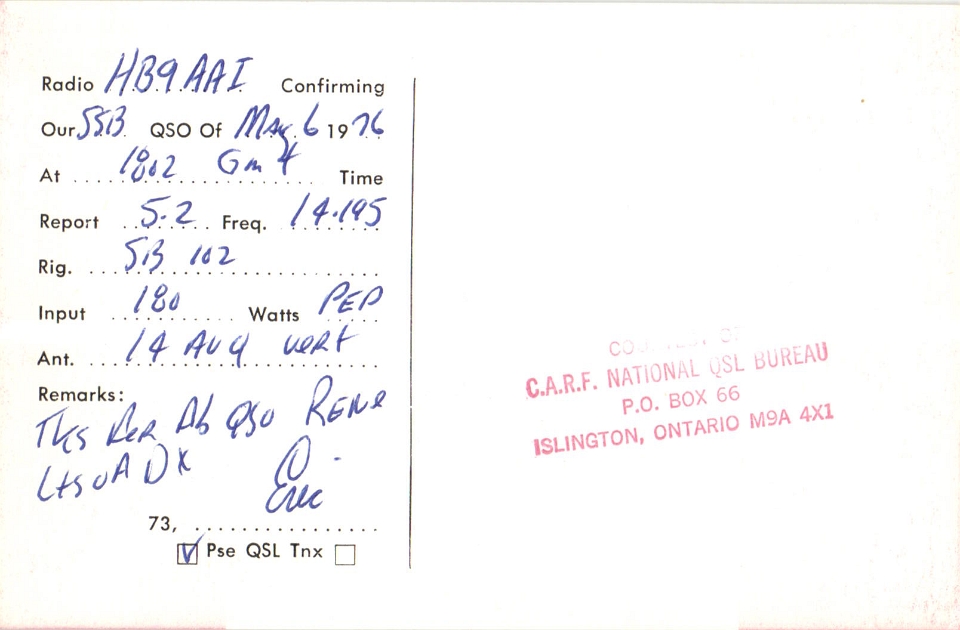 Radio HB9AAI Confirming
Our SSB QSO Of May 6 1976
At 1802 Gmt Time
Report 5-2 Freq. 14.195
Rig. SB 102
Input 180 Watts PEP
Ant. 14 AVQ vert
Remarks:
Tks Rene
QSO
Lts DX
Eric
73,
Pse QSL Tnx
C.A.R.F. NATIONAL QSL BUREAU
P.O. BOX 66
ISLINGTON, ONTARIO M9A 4X1